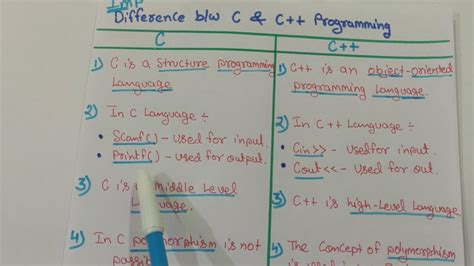 IMP
Difference b/w C & C++ Programming
C
1) C is a Structure programming
Language
2) In C Language ÷
• Scanf() - used for input.
• Printf() - used for output.
3) C is middle Level
Language.
4) In C polymorphism is not
C++
1) C++ is an object-oriented
programming Language.
2) In C++ Language ÷
• Cin>> - used for input
• Cout<< - used for output.
3) C++ is high-Level Language
4) The Concept of polymorphism